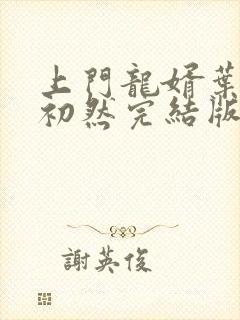 上門龍婿葉
初然完結版
謝英俊